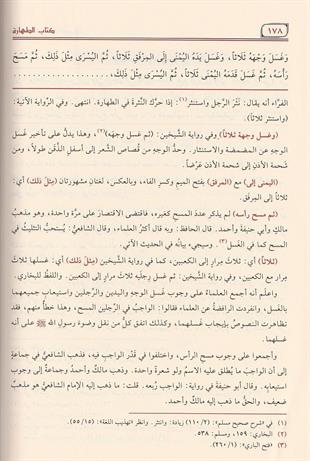 ١٧٨
كتاب الطهارة
وَغَسَلَ وَجْهَهُ ثَلَاثاً، وَغَسَلَ يَدَهُ الْيُمْنَى إِلَى الْمِرْفَقِ ثَلَاثاً، ثُمَّ الْيُسْرَى مِثْلَ ذَلِكَ، ثُمَّ مَسَحَ
رَأْسَهُ، ثُمَّ غَسَلَ قَدَمَهُ الْيُمْنَى ثَلَاثاً، ثُمَّ الْيُسْرَى مِثْلَ ذَلِكَ،
الفرَّاء أنه يقال: نَثَرَ الرَّجل واستنثر(١): إذا حرَّك النَّثرة في الطهارة. انتهى. وفي الرِّواية الآتية:
(واستنثر ثلاثاً).
(وغسل وجهه ثلاثاً) وفي رواية الشَّيخين: (ثم غسل وجهه)(٢)، وهذا يدلُّ على تأخير غسل
الوجه عن المضمضة والاستنثار. وحدُّ الوجه من قصاص الشَّعر إلى أسفل الذَّقن طولاً، ومن
شحمة الأذن إلى شحمة الأذن عَرْضاً.
(اليمنى إلى) مع (المرفق) بفتح الميم وكسر الفاء، وبالعكس، لغتان مشهورتان (مثل ذلك) أي:
ثلاثاً إلى المِرفق.
(ثم مسح رأسه) لم يذكر عدد المسح كغيره، فاقتضى الاقتصار على مرَّة واحدة، وهو مذهبُ
مالك وأبي حنيفة وأحمد. قال الحافظ: وبه قال أكثرُ العلماء، وقال الشافعيُّ: يُستحبُّ التثليثُ في
المسح كما في الغَسل(٣). وسيجيء بيانُه في الحديث الآتي.
(ثلاثاً) أي: ثلاثَ مرارٍ إلى الكعبين، كما في رواية الشيخين (مِثلَ ذلك) أي: غسلها ثلاثَ
مرار مع الكعبين، وفي رواية الشَّيخين: ثم غسل رِجليه ثلاثَ مرارٍ إلى الكعبين. واللفظُ للبخاري.
واعلم أنه أجمع العلماءُ على وجوب غَسلِ الوجه واليدين والرِّجلين واستيعاب جميعهما
بالغسل، وانفردت الرافضةُ عن العلماء فقالوا: الواجبُ في الرِّجلين المسح، وهذا خطأٌ منهم، فقد
تظاهرت النصوصُ بإيجاب غَسلهما، وكذلك اتفق كلُّ من نقل وضوءَ رسولِ الله ﷺ على أنه
غسلهما.
وأجمعوا على وجوب مسح الرأس، واختلفوا في قَدْر الواجب فيه، فذهب الشافعيُّ في جماعةٍ
إلى أن الواجبَ ما يُطلق عليه الاسمُ ولو شعرة واحدة. وذهب مالكٌ وأحمدُ وجماعةٌ إلى وجوب
استيعابه. وقال أبو حنيفة في رواية: الواجب رُبعه. قلت: ما ذهب إليه الإمام الشافعيُّ هو مذهبٌ
ضعيف، والحقُّ ما ذهب إليه مالك وأحمد.
(١) في «شرح صحيح مسلم»: (١١٠/٢) زيادة: وانتثر. وانظر «تهذيب اللغة»: (٥٥/١٥).
(٢) البخاري: ١٥٩، ومسلم: ٥٣٨.
(٣) «فتح الباري»: (٢٦٠/١).